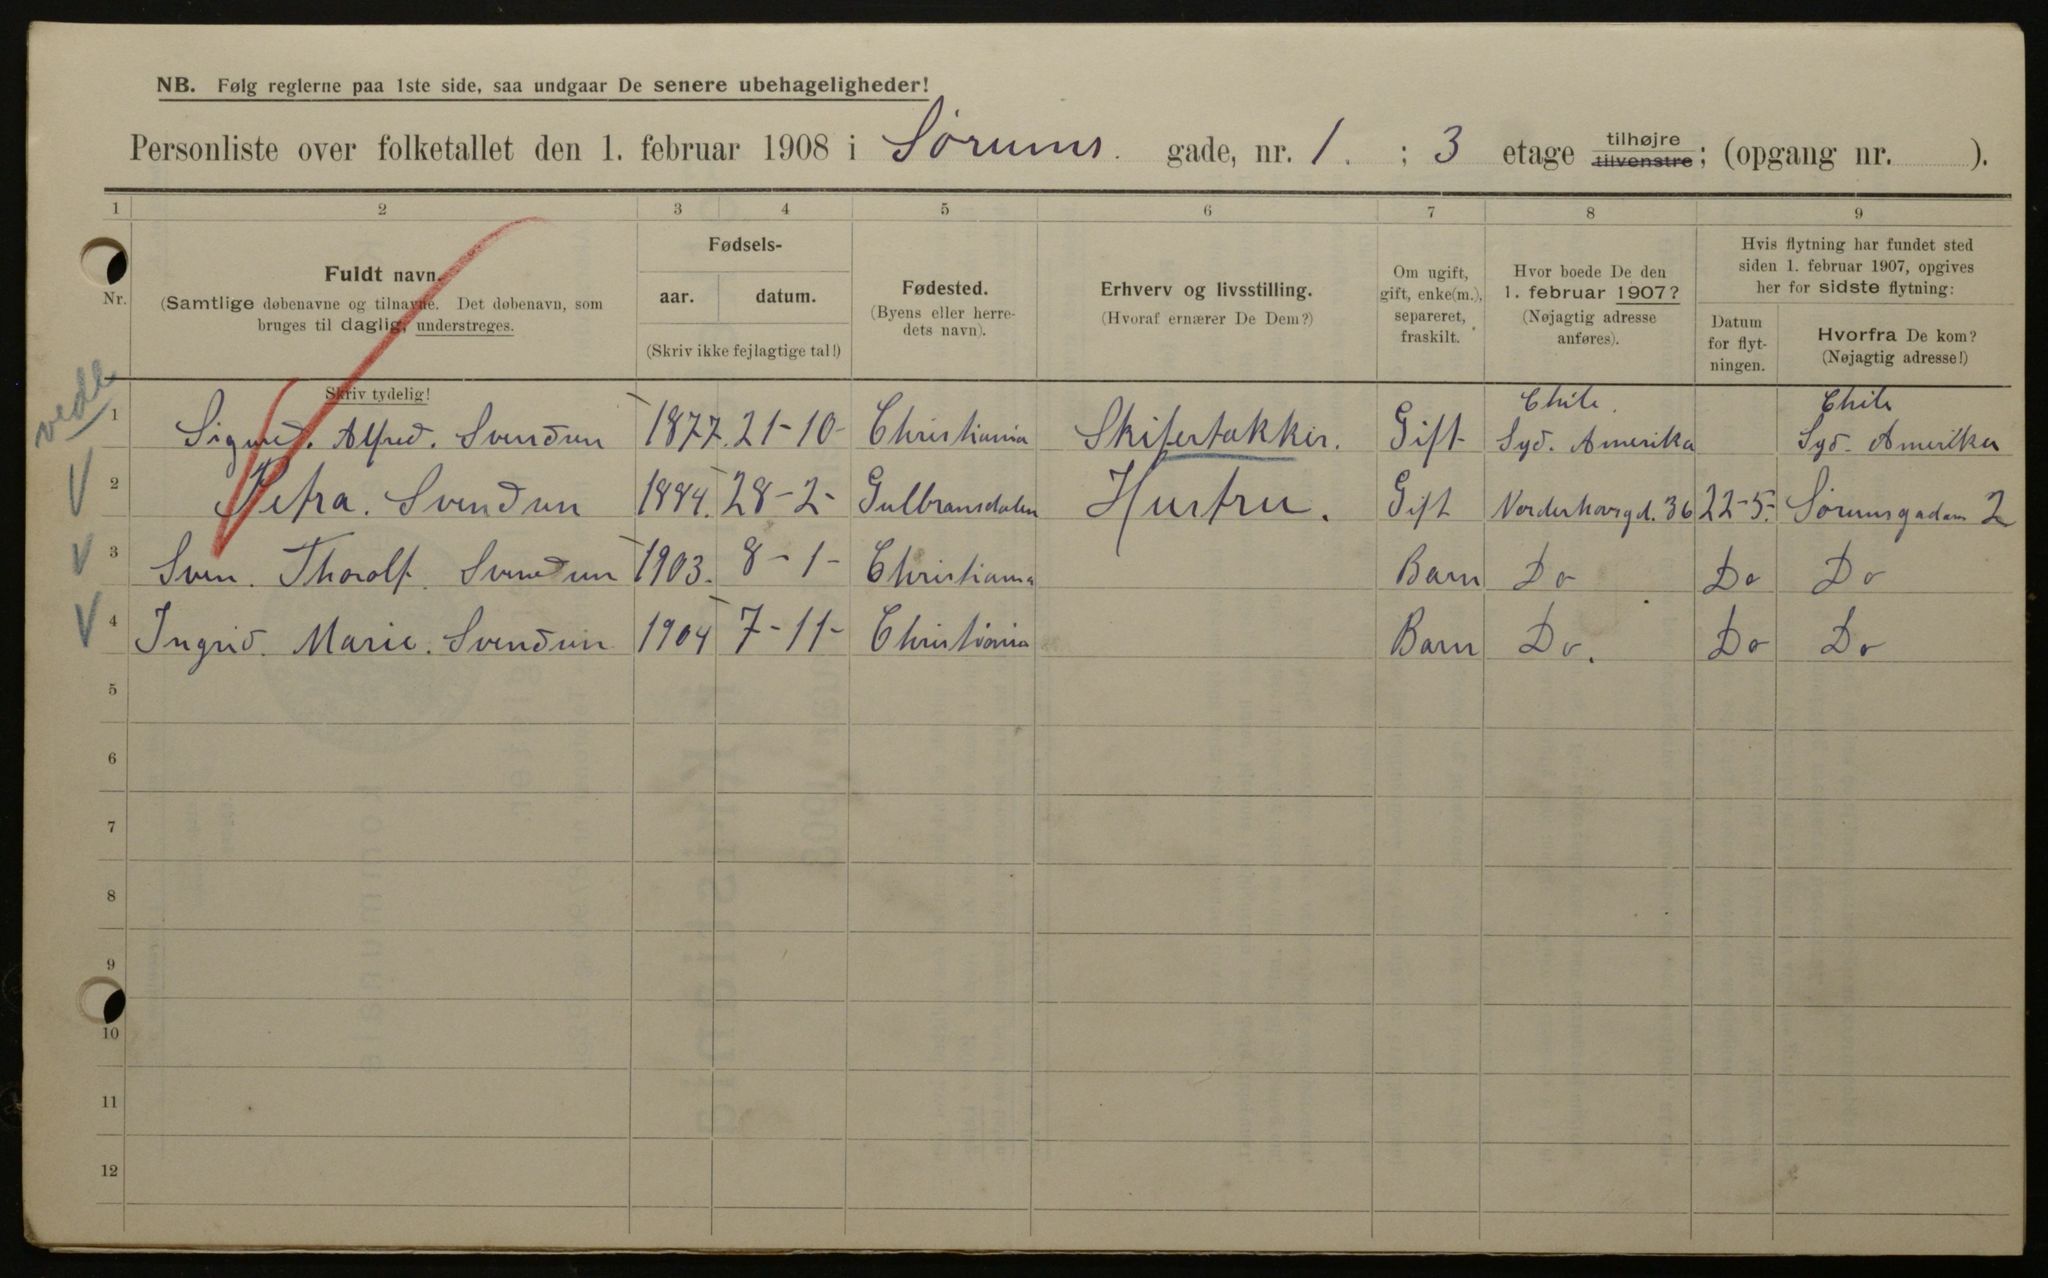 NB. Følg reglerne paa 1ste side, saa undgaar De senere ubehageligheder!
Personliste over folketallet den 1. februar 1908 i Sørums. gade, nr. 1. ; 3 etage tilhøjre tilvenstre; (opgang nr. ).
1 2 3 4 5 6 7 8 9
Nr.
Fuldt navn.
(Samtlige døbenavne og tilnavne. Det døbenavn, som
bruges til daglig, understreges.
Skriv tydelig!
Fødsels-
aar. datum.
(Skriv ikke fejlagtige tal!)
Fødested.
(Byens eller herre-
dets navn).
Erhverv og livsstilling.
(Hvoraf ernærer De Dem?)
Om ugift,
gift, enke(m.),
separeret,
fraskilt.
Hvor boede De den
1. februar 1907?
(Nøjagtig adresse
anføres).
Hvis flytning har fundet sted
siden 1. februar 1907, opgives
her for sidste flytning:
Datum
for flyt-
ningen.
Hvorfra De kom?
(Nøjagtig adresse!)
vede
Chile. Chile
1 Sigurd. Alfred. Svendsen 1877. 21-10- Christiania Skifertækker. Gift Syd. Amerika Syd. Amerika
2 Petra. Svendsen 1884. 28-2- Gulbransdalen Hustru. Gift Norderhovsgd. 36 22-5- Sørumsgaden 2
3 Sven. Thorolf. Svendsen 1903. 8-1- Christiania Barn Do Do Do
4 Ingrid. Marie. Svendsen 1904 7-11- Christiania Barn Do. Do Do
5
6
7
8
9
10
11
12